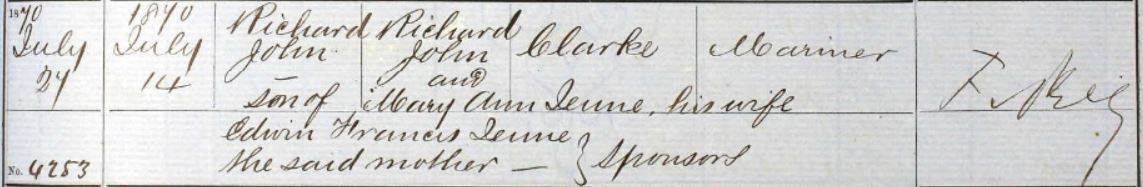 1870 1870 Richard Richard Clarke Mariner
July July John John
27 14 and
son of Mary Ann Jenne, his wife
Edwin Francis Jenne
the said mother — } Sponsors
No. 4253